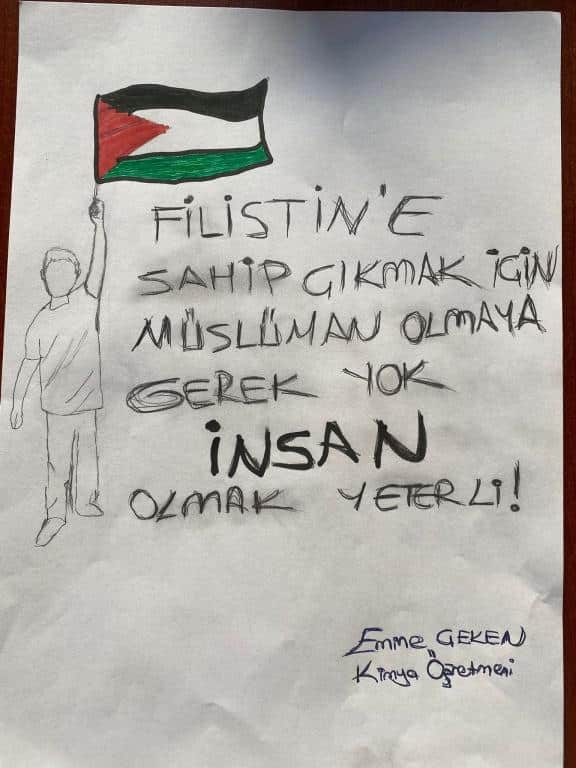 FİLİSTİN'E
SAHİP ÇIKMAK İÇİN
MÜSLÜMAN OLMAYA
GEREK YOK
İNSAN
OLMAK YETERLİ!
Emine GEKEN
Kimya Öğretmeni